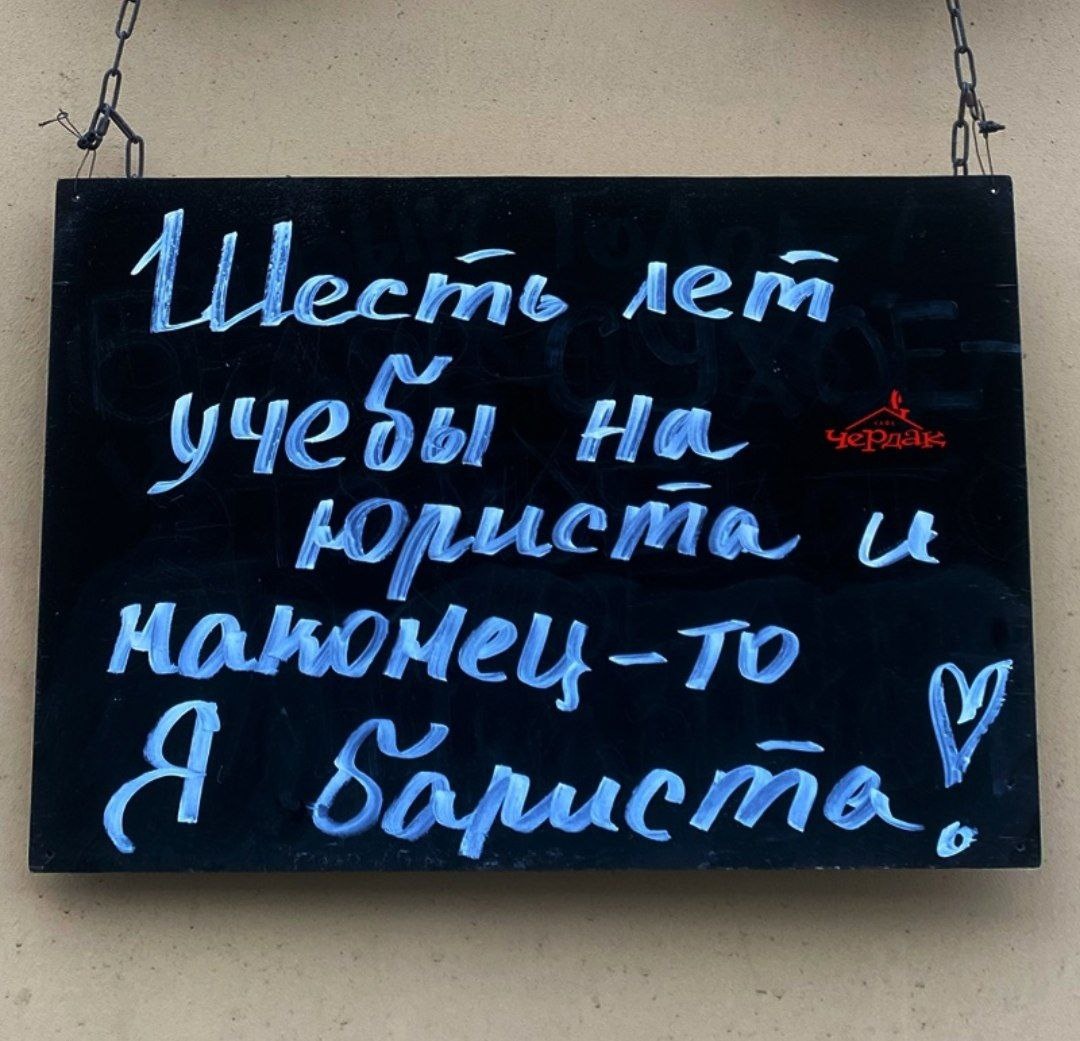 Шесть лет
учебы на
чердак
юриста и
наконец-то
Я бариста!